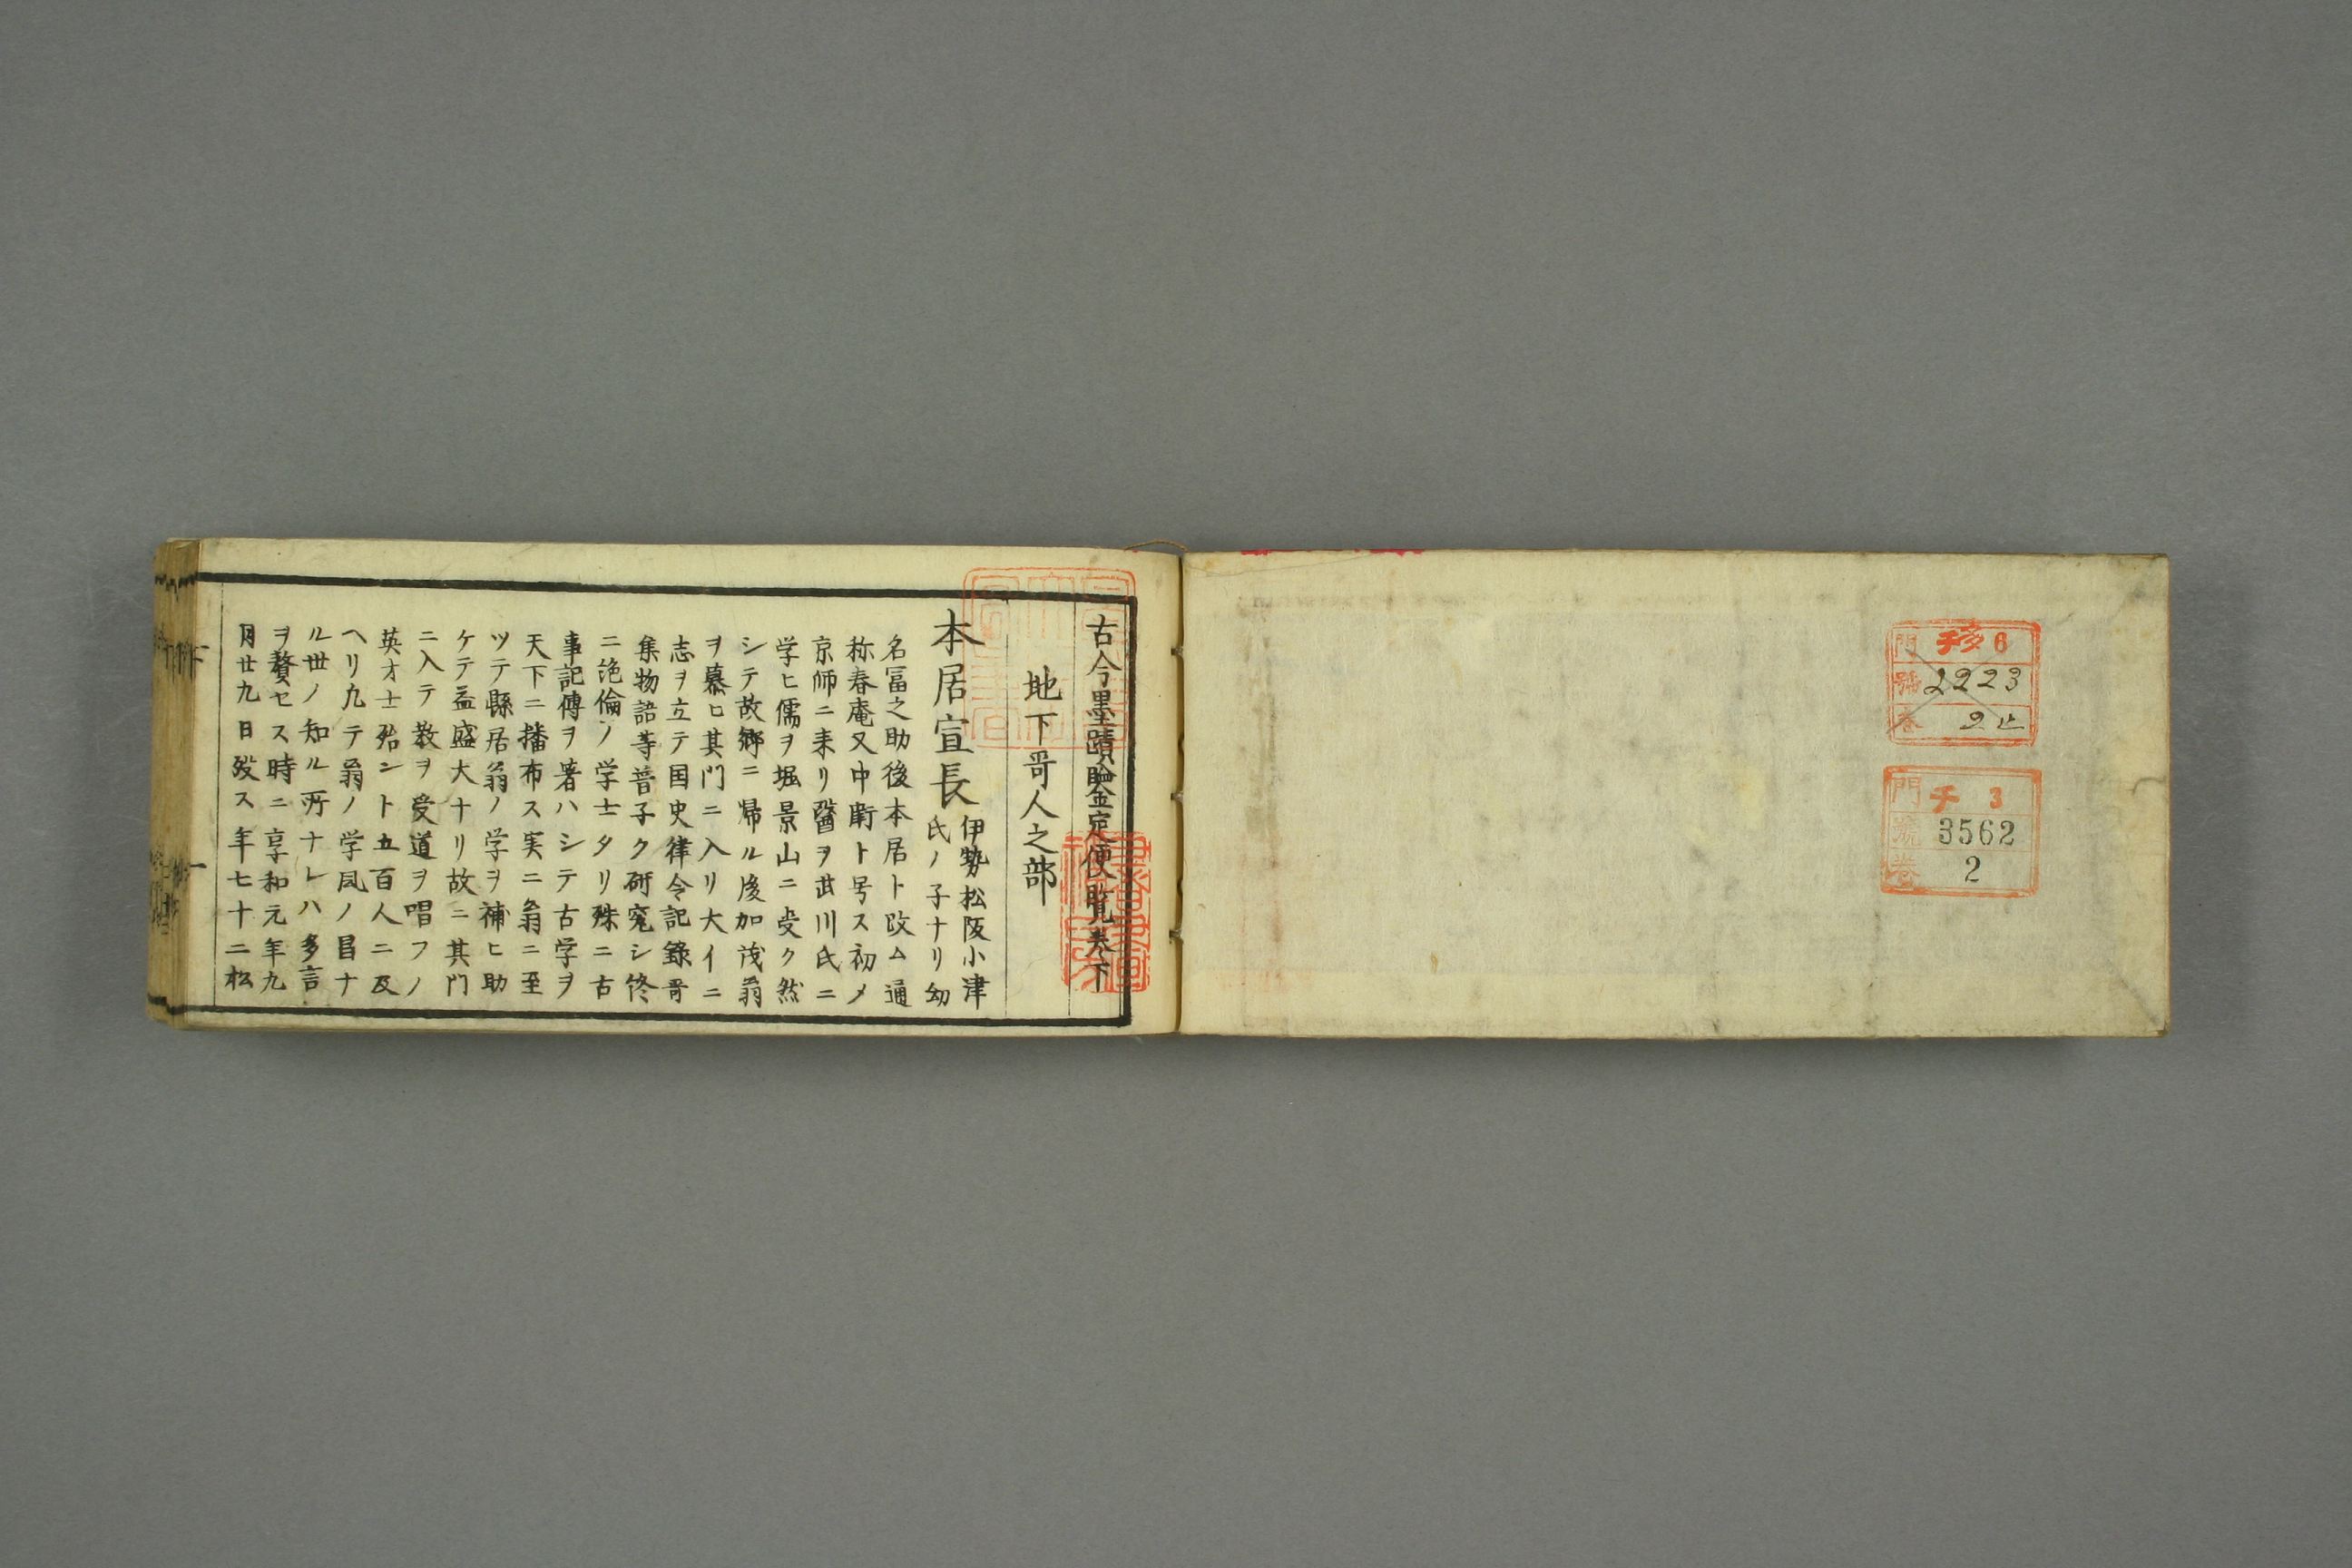 門 チ 6
號 2223
巻 2止
門 チ 3
號 3562
巻 2
古今墨蹟鑒定便覧巻下
地下哥人之部
本居宣長
伊勢松阪小津
氏ノ子ナリ幼
名冨之助後本居ト改ム通
称春庵又中衛ト号ス初メ
京師ニ来リ醫ヲ武川氏ニ
学ヒ儒ヲ堀景山ニ受ク然
シテ故郷ニ帰ル後加茂翁
ヲ慕ヒ其門ニ入リ大イニ
志ヲ立テ国史律令記錄哥
集物語等普子ク研究シ終
ニ絶倫ノ学士タリ殊ニ古
事記傳ヲ著ハシテ古学ヲ
天下ニ播布ス実ニ翁ニ至
ツテ縣居翁ノ学ヲ補ヒ助
ケテ益盛大ナリ故ニ其門
ニ入テ教ヲ受道ヲ唱フノ
英才士殆ント五百人ニ及
ヘリ凡テ翁ノ学風ノ昌ナ
ル世ノ知ル所ナレハ多言
ヲ贅セス時ニ享和元年九
月廿九日歿ス年七十二松